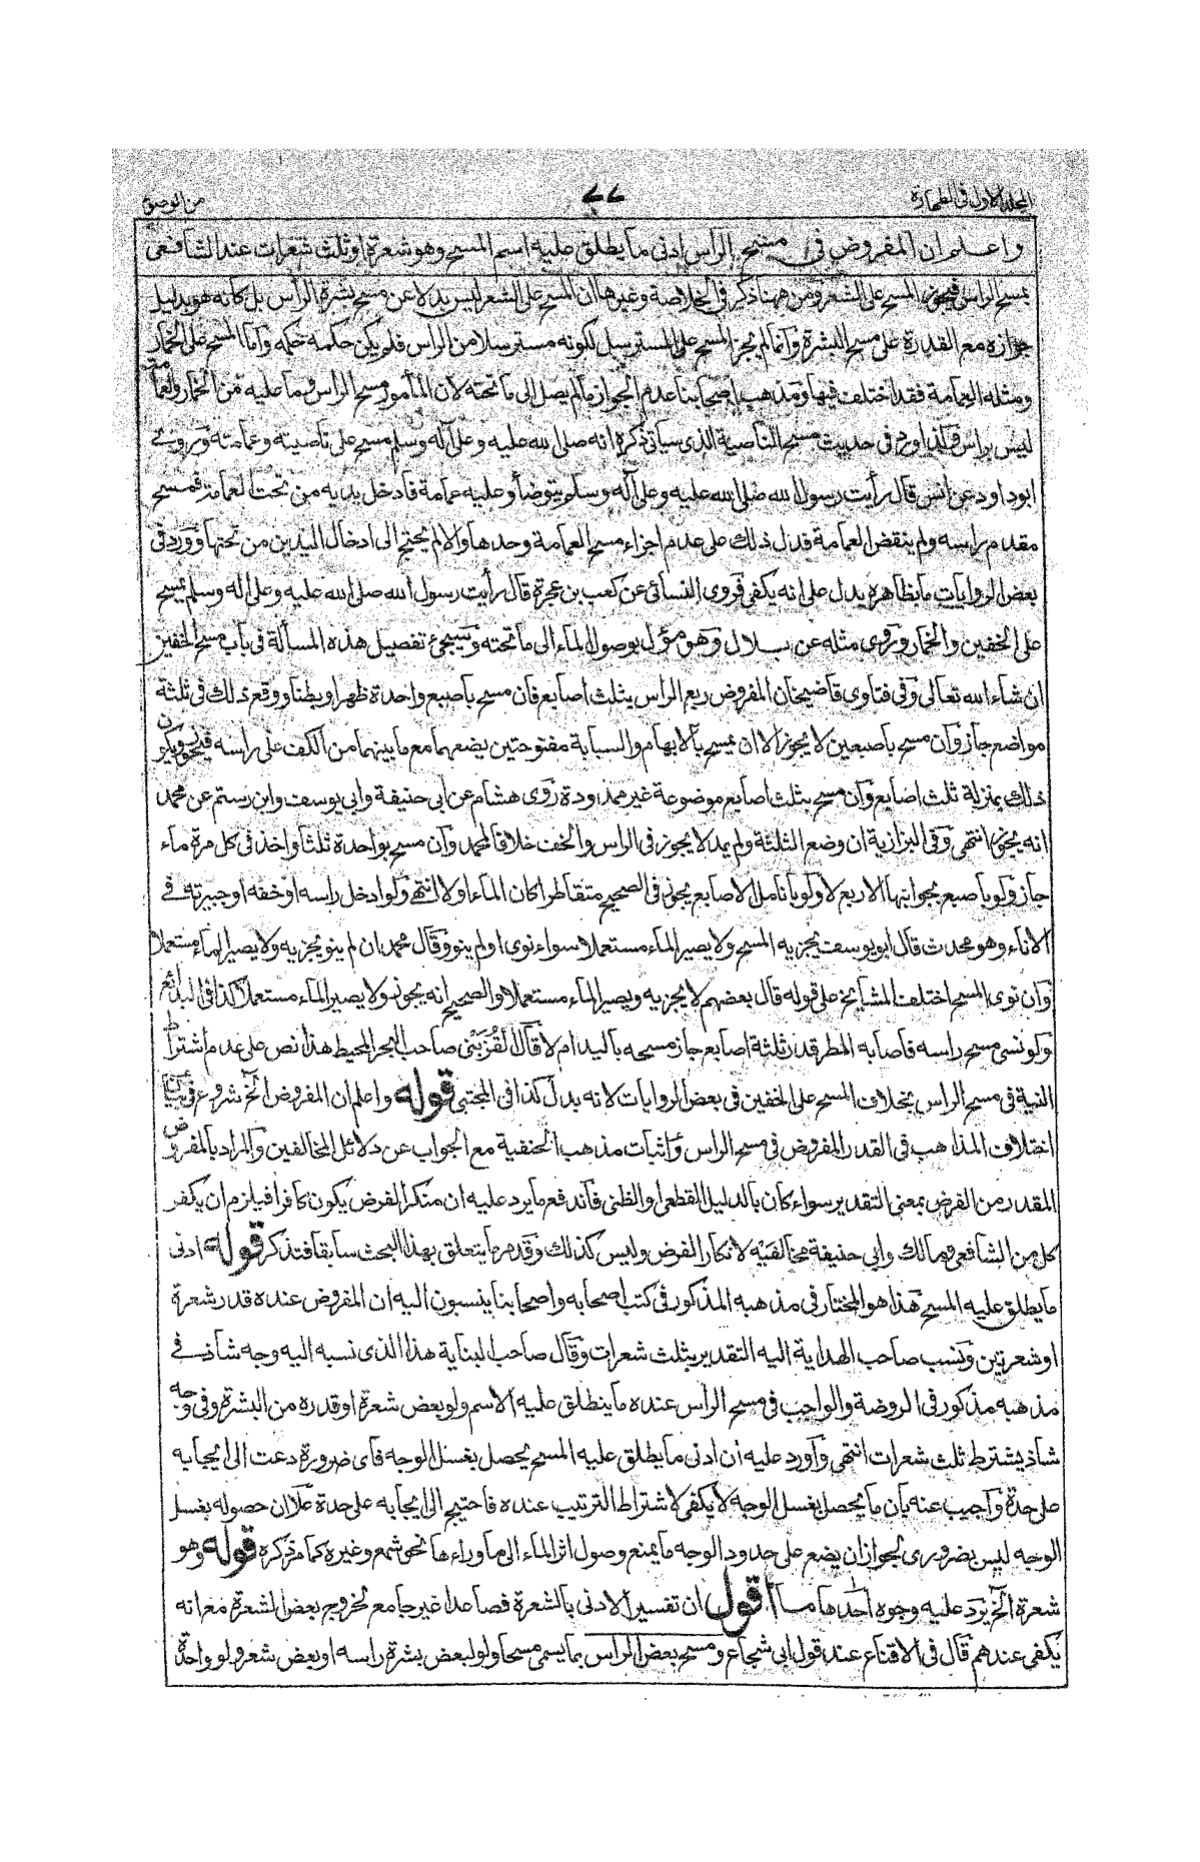 المجلد الاول فى الطهارة ٧٧ من الوضوء
واعلم ان المفروض فى مسح الراس ادنى ما يطلق عليه اسم المسح وهو شعرة او ثلث شعرات عند الشافعى
بمسح الراس فيجوز المسح على الشعر ومن ههنا ذكر فى الخلاصة وغيرها ان المسح على الشعر ليس بدلا عن مسح بشرة الراس بل كانه هو بدليل
جوازه مع القدرة على مسح البشرة وانما لم يجز المسح على المسترسل لكونه مسترسلا من الراس فلم يكن حكمه حكمه واما المسح على الخمار
ومثله العمامة فقد اختلف فيها ومذهب اصحابنا عدم الجواز مالم يصل الى ما تحته لان المأمور مسح الراس وما عليه من الخمار والعمامة
ليس براس ولذا ورد فى حديث مسح الناصية الذى سياتى ذكره انه صلى الله عليه وعلى آله وسلم مسح على ناصيته وعمامته وروى
ابوداود عن انس قال رأيت رسول الله صلى الله عليه وعلى آله وسلم يتوضأ وعليه عمامة فادخل يديه من تحت العمامة فمسح
مقدم راسه ولم ينقض العمامة فدل ذلك على عدم اجزاء مسح العمامة وحدها والا لم يحتج الى ادخال اليدين من تحتها وورد فى
بعض الروايات ما بظاهره يدل على انه يكفى فروى النسائى عن كعب بن عجرة قال رأيت رسول الله صلى الله عليه وعلى اله وسلم يمسح
على الخفين والخمار وروى مثله عن بلال وهو مؤل بوصول الماء الى ما تحته وسيجئ تفصيل هذه المسألة فى باب مسح الخفين
ان شاء الله تعالى وفى فتاوى قاضيخان المفروض ربع الراس بثلث اصابع فان مسح باصبع واحدة ظهرا وبطنا ووقع ذلك فى ثلثة
مواضع جاز وان مسح باصبعين لا يجوز الا ان يمسح بالابهام والسبابة مفتوحتين يضعهما مع ما بينهما من الكف على راسه فيجوز ويكون
ذلك بمنزلة ثلث اصابع وان مسح بثلث اصابع موضوعة غير ممدودة روى هشام عن ابى حنيفة وابى يوسف وابن رستم عن محمد
انه يجوز انتهى وفى البزازية ان وضع الثلثة ولم يمد لا يجوز فى الراس والخف خلافا لمحمد وان مسح بواحدة ثلثا واخذ فى كل مرة ماء
جاز ولو باصبع بجوانبها الاربع لا ولو بانامل الاصابع يجوز فى الصحيح متقاطرا كان الماء اولا انتهى ولو ادخل راسه او خفه او جبيرته فى
الاناء وهو محدث قال ابو يوسف يجزيه المسح ولا يصير الماء مستعملا سواء نوى اولم ينو وقال محمد ان لم ينو يجزيه ولا يصير الماء مستعملا
وان نوى المسح اختلف المشايخ على قوله قال بعضهم لا يجزيه ويصير الماء مستعملا والصحيح انه يجوز ولا يصير الماء مستعملا كذا فى البدائع
ولو نسى مسح راسه فاصابه المطر قدر ثلثة اصابع جاز مسحه باليد ام لا قال القُزَبْنى صاحب البحر المحيط هذا نص على عدم اشتراط
النية فى مسح الراس بخلاف المسح على الخفين فى بعض الروايات لانه بدل كذا فى المجتبى قوله واعلم ان المفروض الخ شروع فى بيان
اختلاف المذاهب فى القدر المفروض فى مسح الراس واثبات مذهب الحنفية مع الجواب عن دلائل المخالفين والمراد بالمفروض
المقدر من الفرض بمعنى التقدير سواء كان بالدليل القطعى او الظنى فاندفع ما يرد عليه ان منكر الفرض يكون كافرا فيلزم ان يكفر
كل من الشافعى ومالك وابى حنيفة مخالفيه لانكار الفرض وليس كذلك وقد مر ما يتعلق بهذا البحث سابقا فتذكر قوله ادنى
ما يطلق عليه المسح هذا هو المختار فى مذهبه المذكور فى كتب اصحابه واصحابنا ينسبون اليه ان المفروض عنده قدر شعرة
او شعرتين ونسب صاحب الهداية اليه التقدير بثلث شعرات وقال صاحب البناية هذا الذى نسبه اليه وجه شاذ فى
مذهبه مذكور فى الروضة والواجب فى مسح الرأس عنده ما ينطلق عليه الاسم ولو بعض شعرة او قدره من البشرة وفى وجه
شاذ يشترط ثلث شعرات انتهى واورد عليه ان ادنى ما يطلق عليه المسح يحصل بغسل الوجه فاى ضرورة دعت الى ايجابه
على حدة واجيب عنه بان ما يحصل بغسل الوجه لا يكفى لاشتراط الترتيب عنده فاحتيج الى ايجابه على حدة علا ان حصوله بغسل
الوجه ليس بضرورى لجواز ان يضع على حدود الوجه ما يمنع وصول اثر الماء الى ما وراءها نحو شمع وغيره كما مر ذكره قوله وهو
شعرة الخ يرد عليه وجوه احدها ما اقول ان تفسير الادنى بالشعرة فصاعدا غير جامع لخروج بعض الشعرة مع انه
يكفى عندهم قال فى الاقناع عند قول ابى شجاع ومسح بعض الراس بما يسمى مسحا ولو لبعض بشرة راسه او بعض شعر ولو واحدة